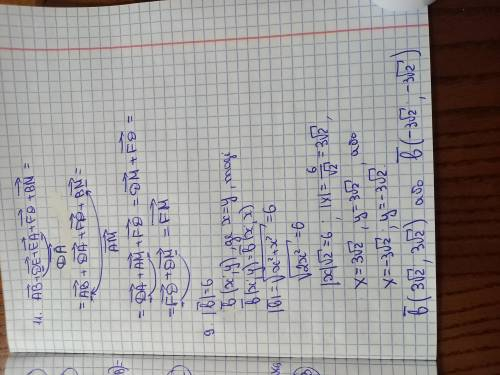 11. AB+DE+EA+FD+BM=
DA
=AB+DA+FD+BM=
AM
=DA+AM+FD=DM+FD=
=FD+DM=FM
9. |b|=6
b(x;y), где x=y, тогі
b(x,y)=b(x,x)
|b|=√x²+x²=6
√2x²=6
|x|√2=6, |x|=6/√2=3√2,
x=3√2, y=3√2, або
x=-3√2, y=-3√2.
b(3√2, 3√2) або b(-3√2, -3√2)